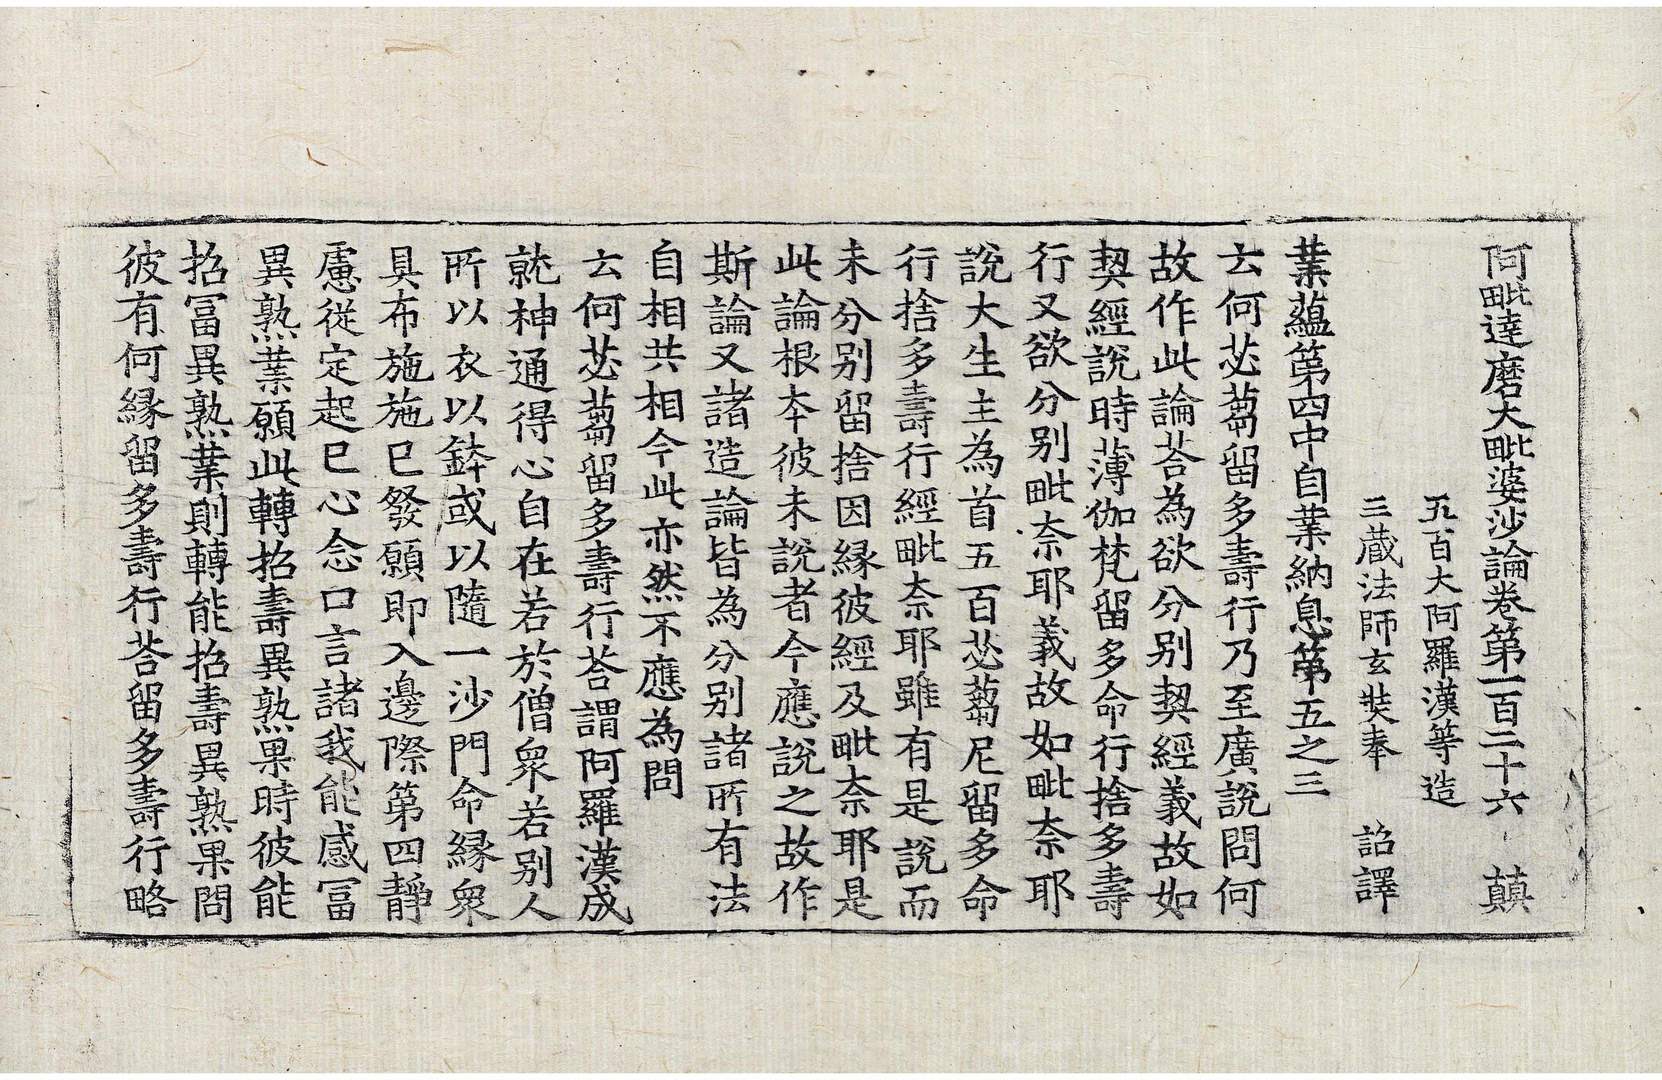 阿毗達磨大毗婆沙論卷第一百二十六 顛
五百大阿羅漢等造
三藏法師玄奘奉 詔譯
業蘊第四中自業納息第五之三
云何苾蒭留多壽行乃至廣說問何
故作此論荅為欲分別契經義故如
契經說時薄伽梵留多命行捨多壽
行又欲分別毗奈耶義故如毗奈耶
說大生主為首五百苾蒭尼留多命
行捨多壽行經毗奈耶雖有是說而
未分別留捨因縁彼經及毗奈耶是
此論根本彼未說者今應說之故作
斯論又諸造論皆為分別諸所有法
自相共相今此亦然不應為問
云何苾蒭留多壽行荅謂阿羅漢成
就神通得心自在若於僧衆若別人
所以衣以鉢或以隨一沙門命縁衆
具布施施已發願即入邊際第四靜
慮從定起已心念口言諸我能感冨
異熟業願此轉招壽異熟果時彼能
招冨異熟業則轉能招壽異熟果問
彼有何縁留多壽行荅留多壽行略